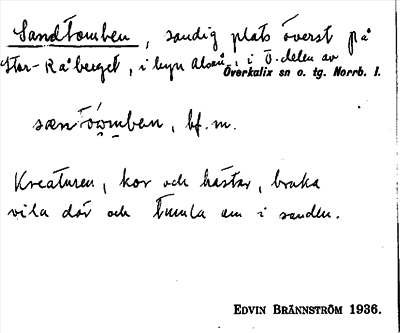 Sandtomben, sandig plats överst på
Stor-Råberget, i byn Alsån, i ö. delen av
Överkalix sn o. tg. Norrb. l.
bf. m.
Kreaturen, kor och hästar, bruka
vila där och tumla om i sanden.
EDVIN BRÄNNSTRÖM 1936.